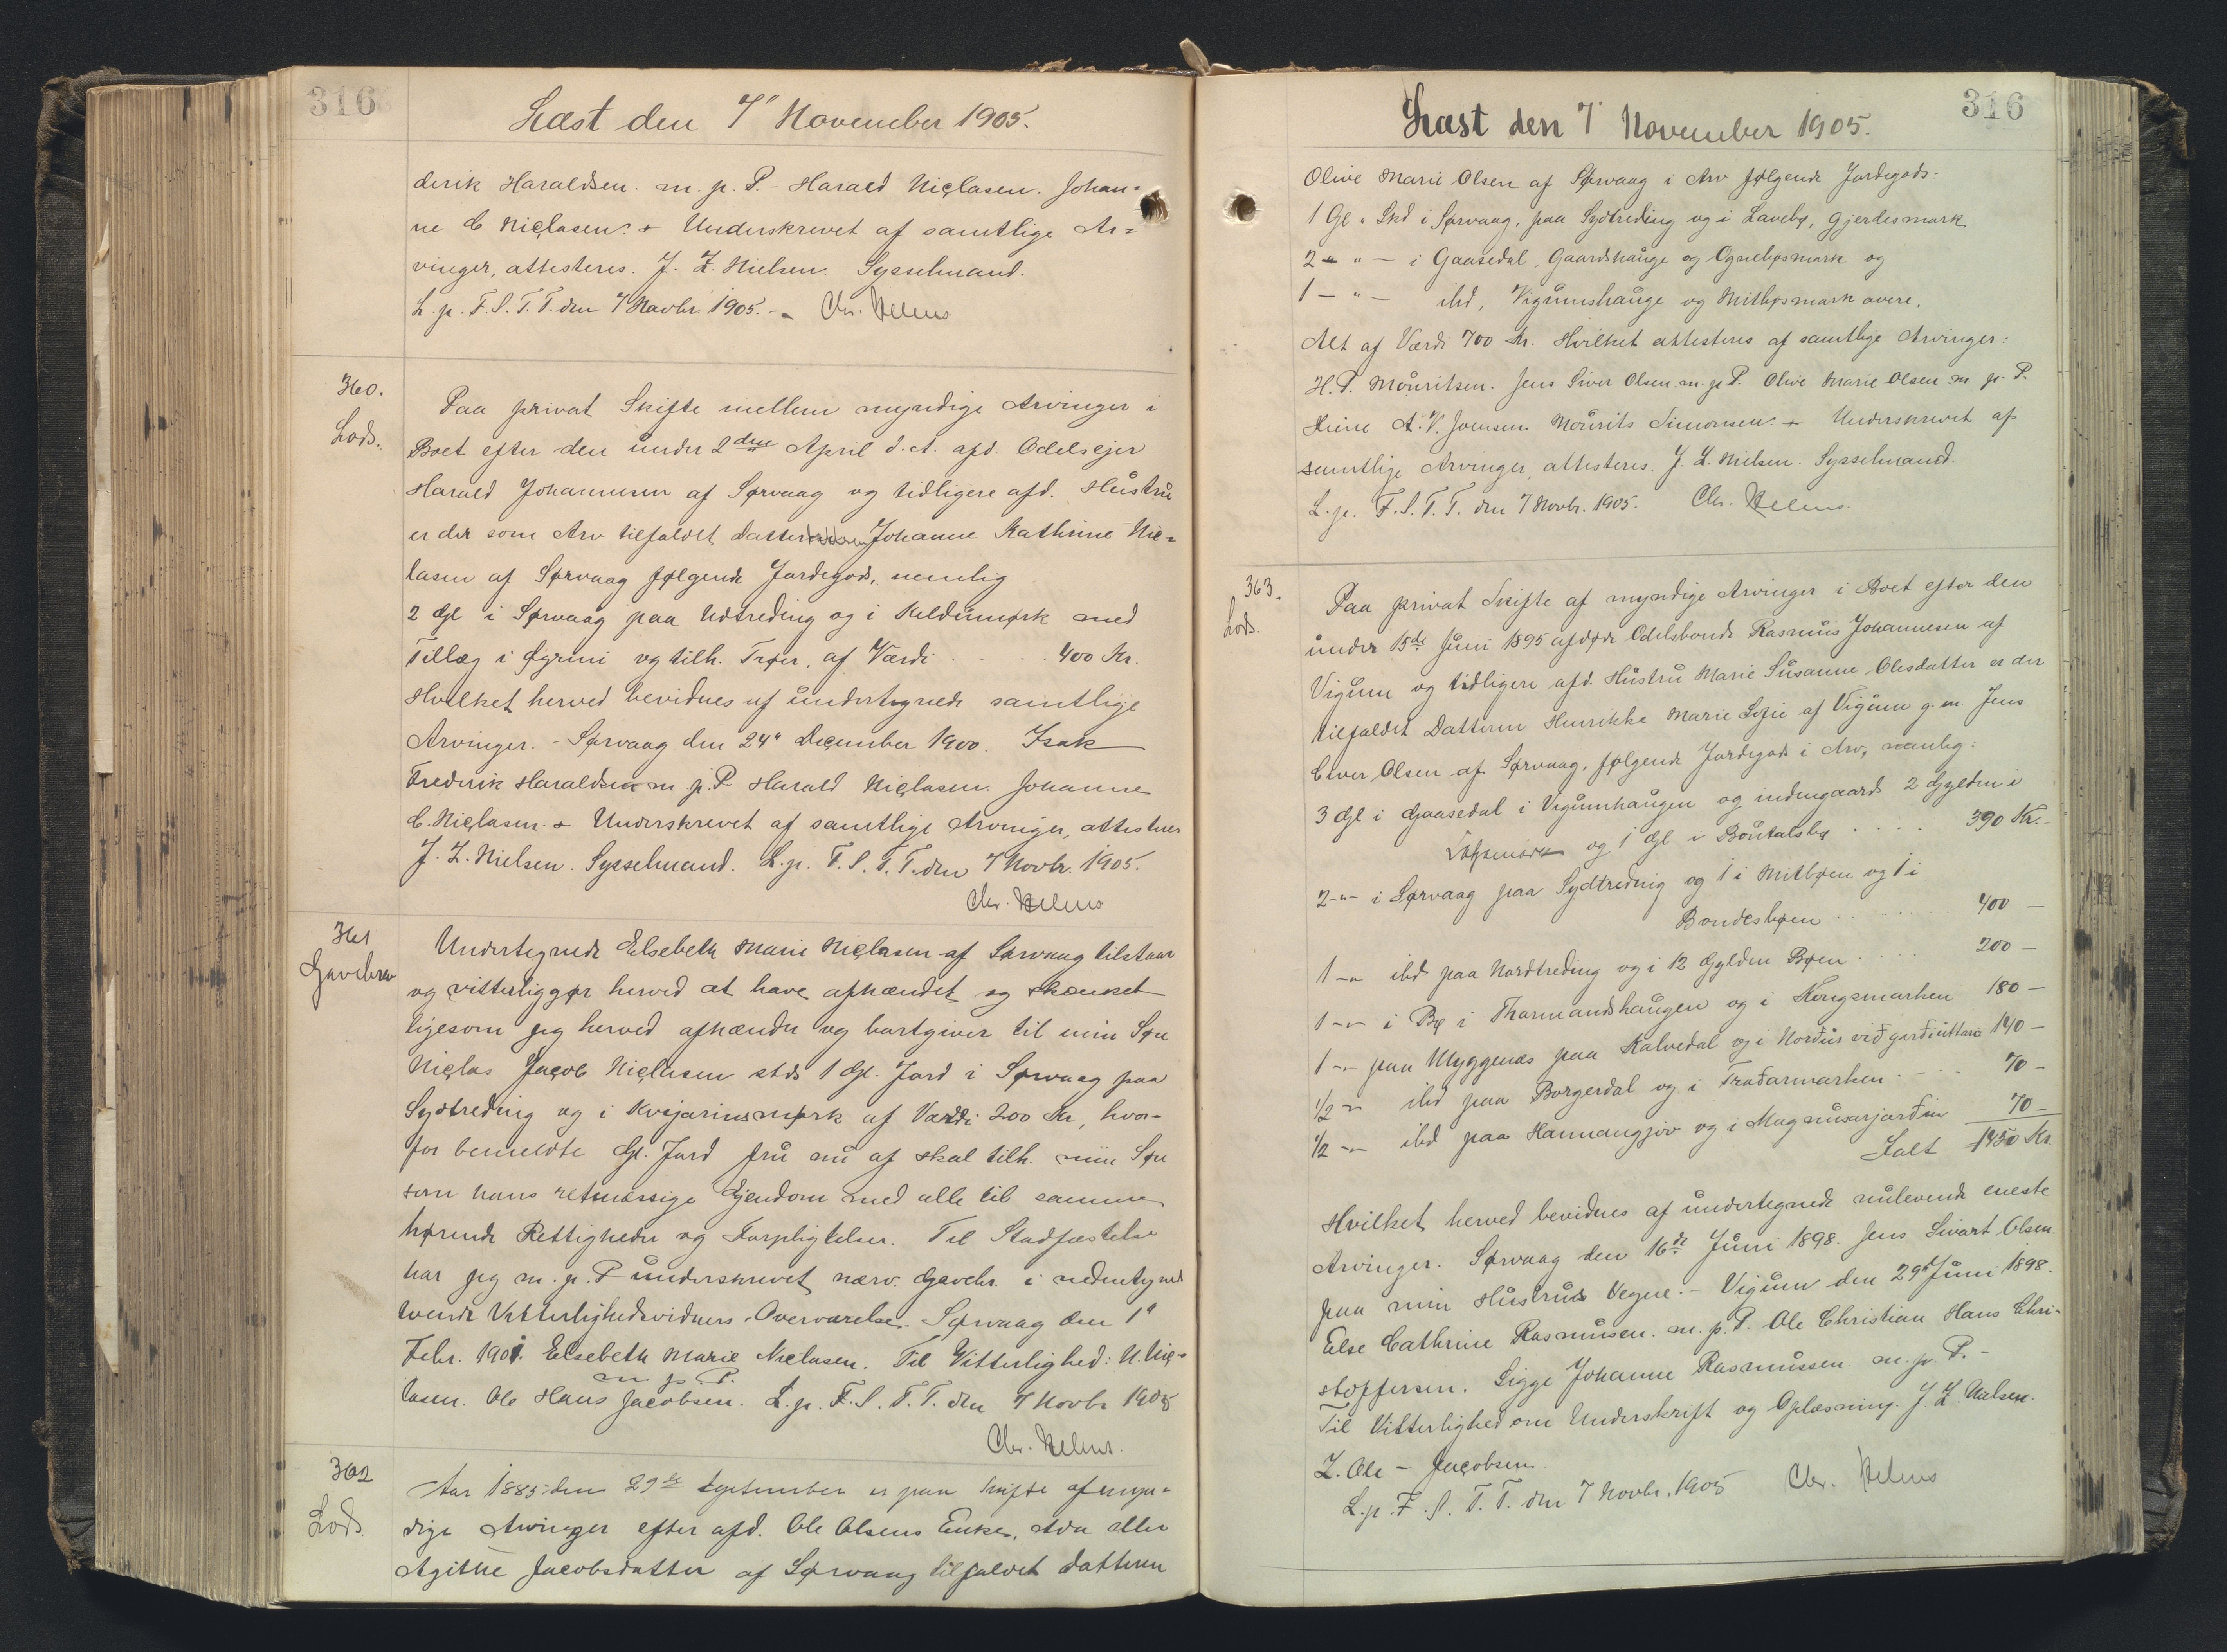 316
Læst den 7" November 1905.
derik Haraldsen. m. p. P. - Harald Niclasen. Johan=
ne C Niclasen. + Underskrevet af samtlige Ar=
vinger, attesteres. J. Z. Nielsen. Sysselmand.
L. p. F. S. T. T. den 7 Novbr. 1905. - Chr. Helms
360.
Lods.
Paa privat Skifte mellem myndige Arvinger i
Boet efter den under 2den April d. A. afd. Odelsejer
Harald Johannesen af Sørvaag og tidligere afd. Hustru
er der som Arv tilfaldet Datter Johanne Kathrine Nic=
lasen af Sørvaag følgende Jordegods, nemlig
2 Gl i Sørvaag paa Udtreding og i Keldumørk med
Tillæg i Øgrini og tilh. Trøer, af Værdi . . . . 400 Kr.
Hvilket herved bevidnes af undertegnede samtlige
Arvinger. - Sørvaag den 24" December 1900. Isak
Frederik Haraldsen m. p. P Harald Niclasen. Johanne
C. Niclasen. + Underskrevet af samtlige Arvinger, attesteres
J. Z. Nielsen. Sysselmand. L. p. F. S. T. T. den 7 Novbr. 1905.
Chr. Helms
361
Gavebrev
Undertegnede Elsebeth Marie Niclasen af Sørvaag tilstaar
og vitterliggør herved at have afhændet og skænket
ligesom jeg herved afhænder og bortgiver til min Søn
Niclas Jacob Niclasen stds 1 Gl. Jord i Sørvaag paa
Sydtreding og i Kvsjarinsmørk af Værdi 200 Kr, hvor-
for bemeldte Gl. Jord fru nu af skal tilh. min Søn
som hans retmæssige Ejendom med alle til samme
hørende Rettigheder og Forpligtelser. Til Stadfæstelse
har jeg m. p. P underskrevet nærv. Gavebr. i nedentegned
tvende Vitterlighedsvidners Overværelse. Sørvaag den 1"
Febr. 1901. Elsebeth Marie Niclasen. Til Vitterlighed: N. Nic=
m. p. P.
lasen. Ole Hans Jacobsen. L. p. F. S. T. T. den 7 Novbr 1905
Chr. Helms.
362
Lods.
Aar 1885 den 29de September er paa Skifte af myn=
dige Arvinger efter afd. Ole Olsens Enke, Ada eller
Agithe Jacobsdatter af Sørvaag tilfaldet Datteren
316
Læst den 7' November 1905.
Olive Marie Olsen af Sørvaag i Arv følgende Jordegods:
1 Gl " Skd i Sørvaag, paa Sydtreding og i Laveby, Gjerdesmark
2 - " - i Gaasedal, Gaardshauge og Ognebøsmark og
1 - " - ibd, Vigumshauge og Mitbøsmark overe.
Alt af Værdi 700 Kr. Hvilket attesteres af samtlige Arvinger:
H. P. Mouritsen. Jens Siver Olsen. m. p. P. Olive Marie Olsen m. p. P.
Heine A. V. Joensen. Mourits Simonsen. + Underskrevet af
samtlige Arvinger, attesteres. J. Z. Nielsen. Sysselmand.
L. p. F. S. T. T. den 7 Novbr. 1905. Chr. Helms.
363.
Lods.
Paa privat Skifte af myndige Arvinger i Boet efter den
under 15de Juni 1895 afdøde Odelsbonde Rasmus Johannesen af
Vigum og tidligere afd. Hustru Marie Susanne Olesdatter er der
tilfaldet Datteren Henrikke Marie Sofie af Vigum g. m. Jens
Siver Olsen af Sørvaag, følgende Jordegods i Arv, nemlig:
3 Gl i Gaasedal i Vigumhaugen og indengaards 2 Gylden i
og 1 Gl i Boutalsby . . . . 390 Kr.
2 -"- i Sørvaag paa Sydtreding og 1 i Mitbøen og 1 i
Bondesbøen . . . . . . 400 -
1 -"- ibd paa Nordtreding og i 12 Gylden Bøen . . . . 200 -
1 -"- i Bø i Thormandshaugen og i Kongsmarken 180 -
1 -"- paa Myggenæs paa Kalvedal og i Nordur við garð uttara 140 -
1/2 -"- ibd paa Borgerdal og i Traðarmarken . - . . 70 -
1/2 -"- ibd paa Hamnangjov og i Magnusarjarðin 70 -
Ialt 1450 Kr
Hvilket herved bevidnes af undertegnede nulevende eneste
Arvinger. Sørvaag den 16de Juni 1898. Jens Sivart Olsen
paa min Hustrus Vegne. - Vigum den 29de Juni 1898.
Else Cathrine Rasmusen. m. p. P. Ole Christian Hans Chri-
stoffersen. Sigge Johanne Rasmussen m. p. P. -
Til Vitterlighed om Underskrift og Oplæsning. J Z. Nielsen.
Z. Ole - Jacobsen
L. p. F. S. T. T. den 7 Novbr. 1905 Chr. Helms